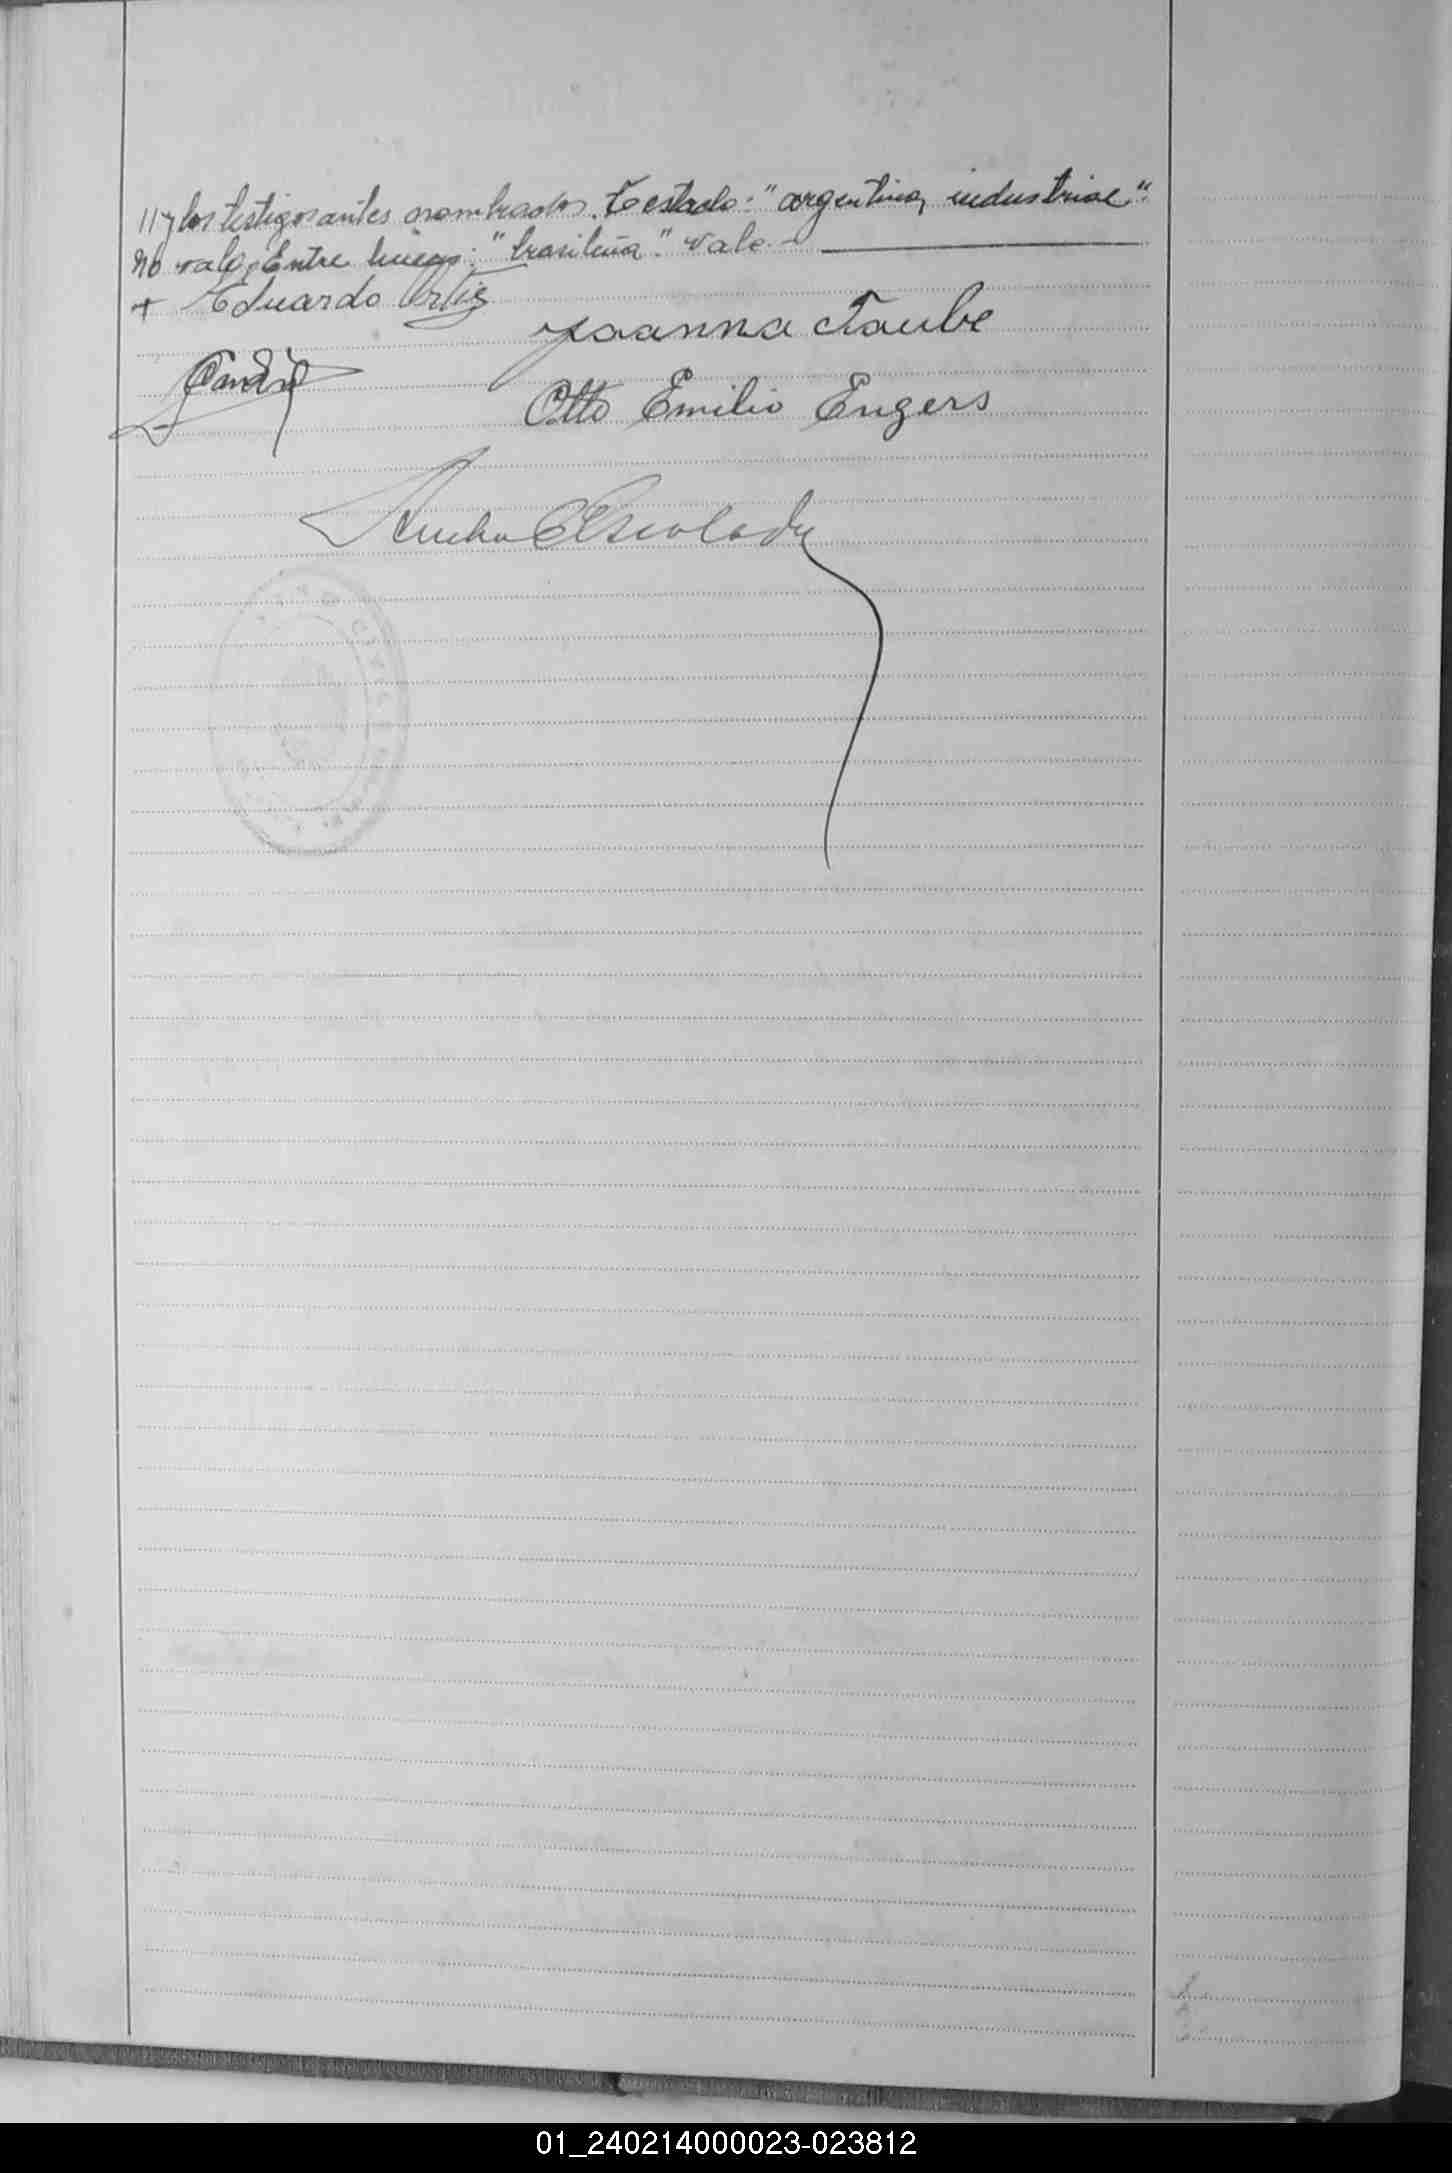 //y los testigos antes nombrados. Testado: "argentina, industrial".
No vale. Entre lineas: "brasileña". Vale.
+ Eduardo Ortiz
Joanna Taube
Otto Emilio Engers
01_240214000023-023812